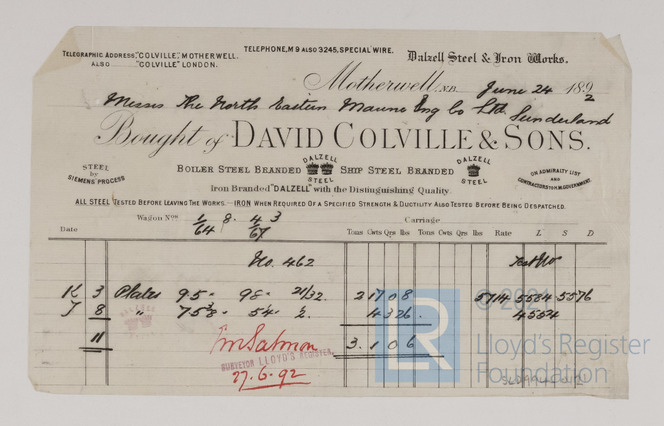 TELEGRAPHIC ADDRESS, "COLVILLE", MOTHERWELL.
ALSO "COLVILLE" LONDON.
TELEPHONE, M 9 ALSO 3245, SPECIAL WIRE.
Dalzell Steel & Iron Works.
Motherwell, N.B. June 24 1892
Messrs The North Eastern Marine Eng Co Ltd. Sunderland
Bought of DAVID COLVILLE & SONS.
STEEL by SIEMENS' PROCESS
BOILER STEEL BRANDED DALZELL STEEL SHIP STEEL BRANDED DALZELL STEEL
ON ADMIRALTY LIST AND CONTRACTORS TO H.M. GOVERNMENT.
Iron Branded "DALZELL" with the Distinguishing Quality.
ALL STEEL TESTED BEFORE LEAVING THE WORKS.—IRON WHEN REQUIRED OF A SPECIFIED STRENGTH & DUCTILITY ALSO TESTED BEFORE BEING DESPATCHED.
Wagon Nos 1/64 8. 4/67 3 Carriage
Date Tons Cwts Qrs lbs Tons Cwts Qrs lbs Rate L S D
No. 462 Test No
K 3 Plates 95 . 98 . 21/32. 2 17 0 8 5714 5584 5576
J 8 " 75 3/8 . 54 . 1/2. 4 3 26. 4554
11 3. 1 0 6
JM Salmon
SURVEYOR LLOYD'S REGISTER.
27.6.92
© 2021
LR
Lloyd's Register
Foundation